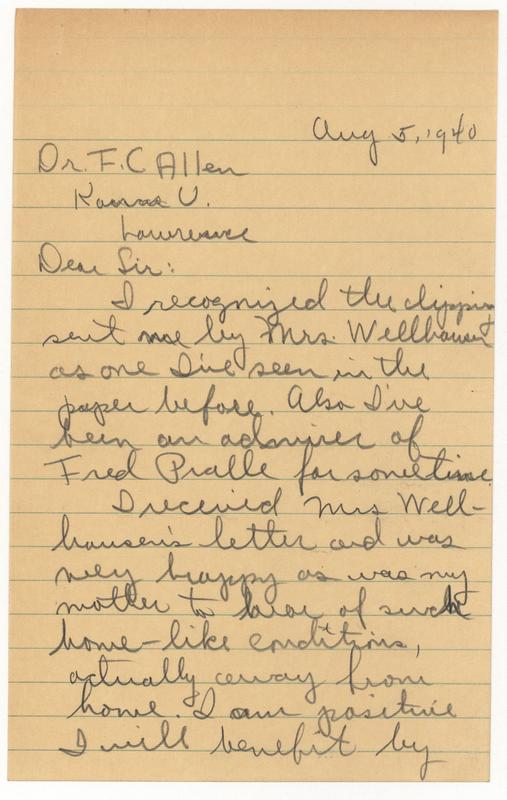 Aug 5, 1940
Dr. F. C Allen
Kansas U.
Lawrence
Dear Sir:
I recognized the clipping
sent me by Mrs. Wellhausen
as one I've seen in the
paper before. Also I've
been an admirer of
Fred Pralle for sometime
I received Mrs Well-
hausen's letter and was
very happy as was my
mother to hear of such
home-like conditions,
actually away from
home. I am positive
I will benefit by